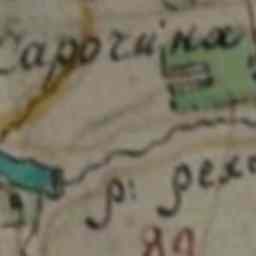 Сарочина
р: рехо
89